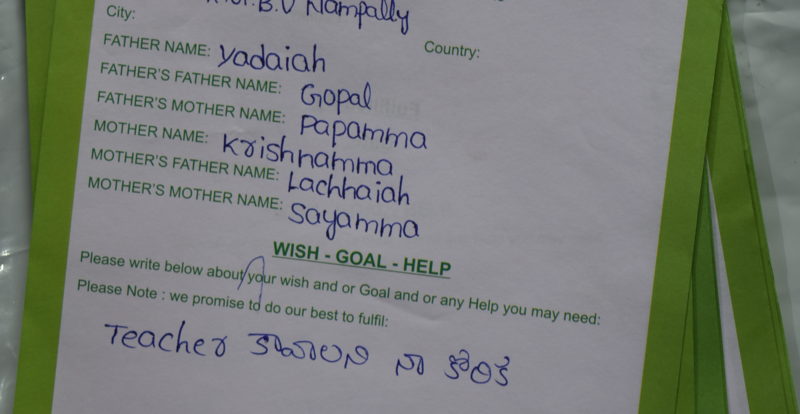 B.V Nampally
City:
Country:
FATHER NAME: Yadaiah
FATHER'S FATHER NAME: Gopal
FATHER'S MOTHER NAME: Papamma
MOTHER NAME: Krishnamma
MOTHER'S FATHER NAME: Lachhaiah
MOTHER'S MOTHER NAME: Sayamma
WISH - GOAL - HELP
Please write below about your wish and or Goal and or any Help you may need:
Please Note : we promise to do our best to fulfil:
Teacher కావాలని నా కోరిక